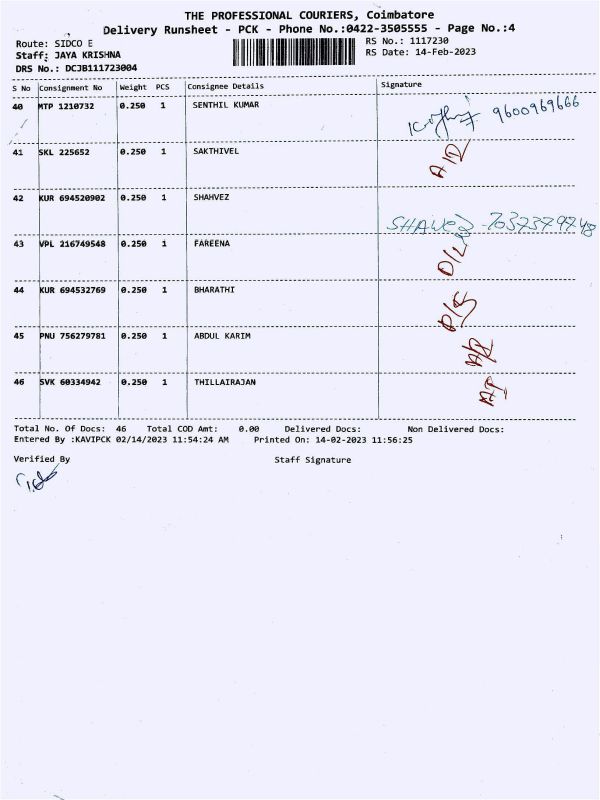 THE PROFESSIONAL COURIERS, Coimbatore
Delivery Runsheet - PCK - Phone No.:0422-3505555 - Page No.:4
Route: SIDCO E
RS No.: 1117230
Staff: JAYA KRISHNA
RS Date: 14-Feb-2023
DRS No.: DCJB111723004
S No Consignment No Weight PCS Consignee Details Signature
40 MTP 1210732 0.250 1 SENTHIL KUMAR
9600969666
41 SKL 225652 0.250 1 SAKTHIVEL
42 KUR 694520902 0.250 1 SHAHVEZ
43 VPL 216749548 0.250 1 FAREENA
D/L
44 KUR 694532769 0.250 1 BHARATHI
45 PNU 756279781 0.250 1 ABDUL KARIM
46 SVK 60334942 0.250 1 THILLAIRAJAN
Total No. Of Docs: 46 Total COD Amt: 0.00 Delivered Docs: Non Delivered Docs:
Entered By :KAVIPCK 02/14/2023 11:54:24 AM Printed On: 14-02-2023 11:56:25
Verified By Staff Signature